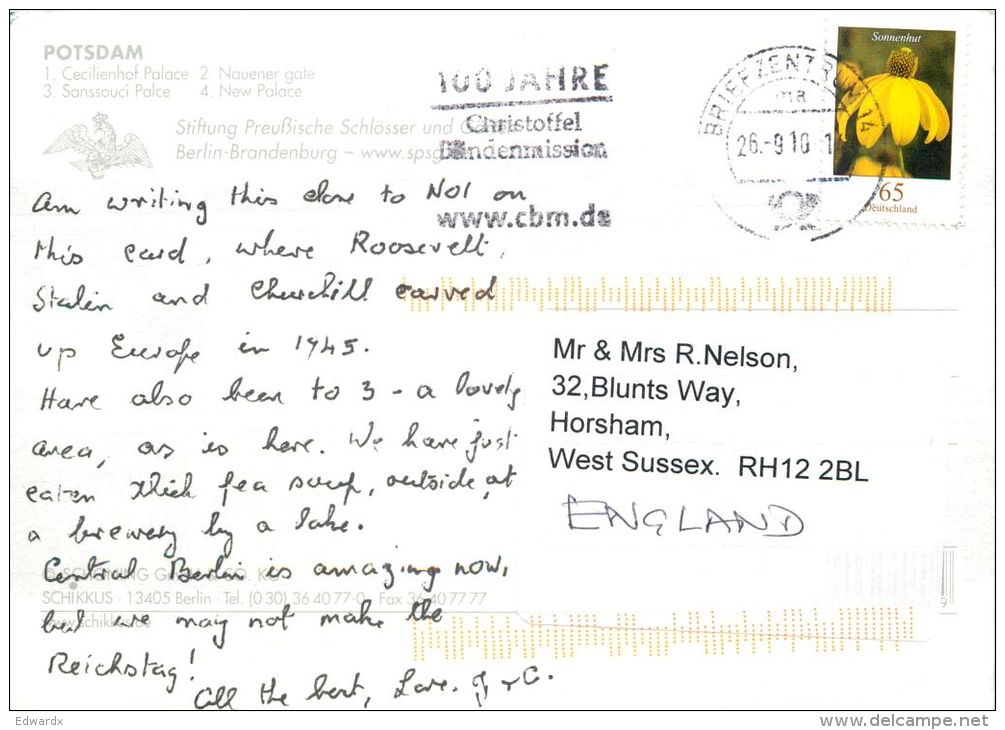 POTSDAM
1. Cecilienhof Palace 2. Nauener gate
3. Sanssouci Palce 4. New Palace
Stiftung Preußische Schlösser und
Berlin-Brandenburg – www.spsg
100 JAHRE
Christoffel
Blindenmission
www.cbm.de
BRIEFZENTRUM 14
ma
26.-9.10.-1
Sonnenhut
65
Deutschland
Am writing this close to No1 on
this card, where Roosevelt,
Stalin and Churchill carved
up Europe in 1945.
Have also been to 3 - a lovely
area, as is here. We have just
eaten thick pea soup, outside, at
a brewery by a lake.
Central Berlin is amazing now,
but we may not make the
Reichstag!
All the best, Love. J + C.
Mr & Mrs R.Nelson,
32,Blunts Way,
Horsham,
West Sussex. RH12 2BL
ENGLAND
SCHIKKUS · 13405 Berlin · Tel. (030) 36 40 77-0 Fax 36 40 77 77
www.schikkus.de
9
Edwardx
www.delcampe.net